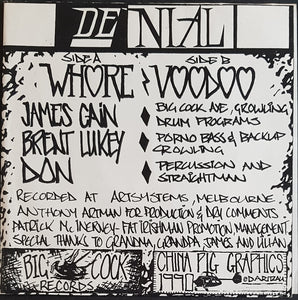 DENIAL
SIDE A SIDE B
WHORE VOODOO
JAMES CAIN BIG COCK AVE, GROWLING
DRUM PROGRAMS
BRENT LUKEY PORNO BASS & BACKUP
GROWLING
DON PERCUSSION AND
STRAIGHTMAN
RECORDED AT ARTSYSTEMS, MELBOURNE.
ANTHONY ARTMAN FOR PRODUCTION & DRY COMMENTS
PATRICK MC INERNEY - FAT IRISHMAN PROMOTION MANAGEMENT
SPECIAL THANKS TO GRANDMA, GRANDPA JAMES AND LILIAN
BIG COCK
RECORDS
CHINA PIG GRAPHICS
1990